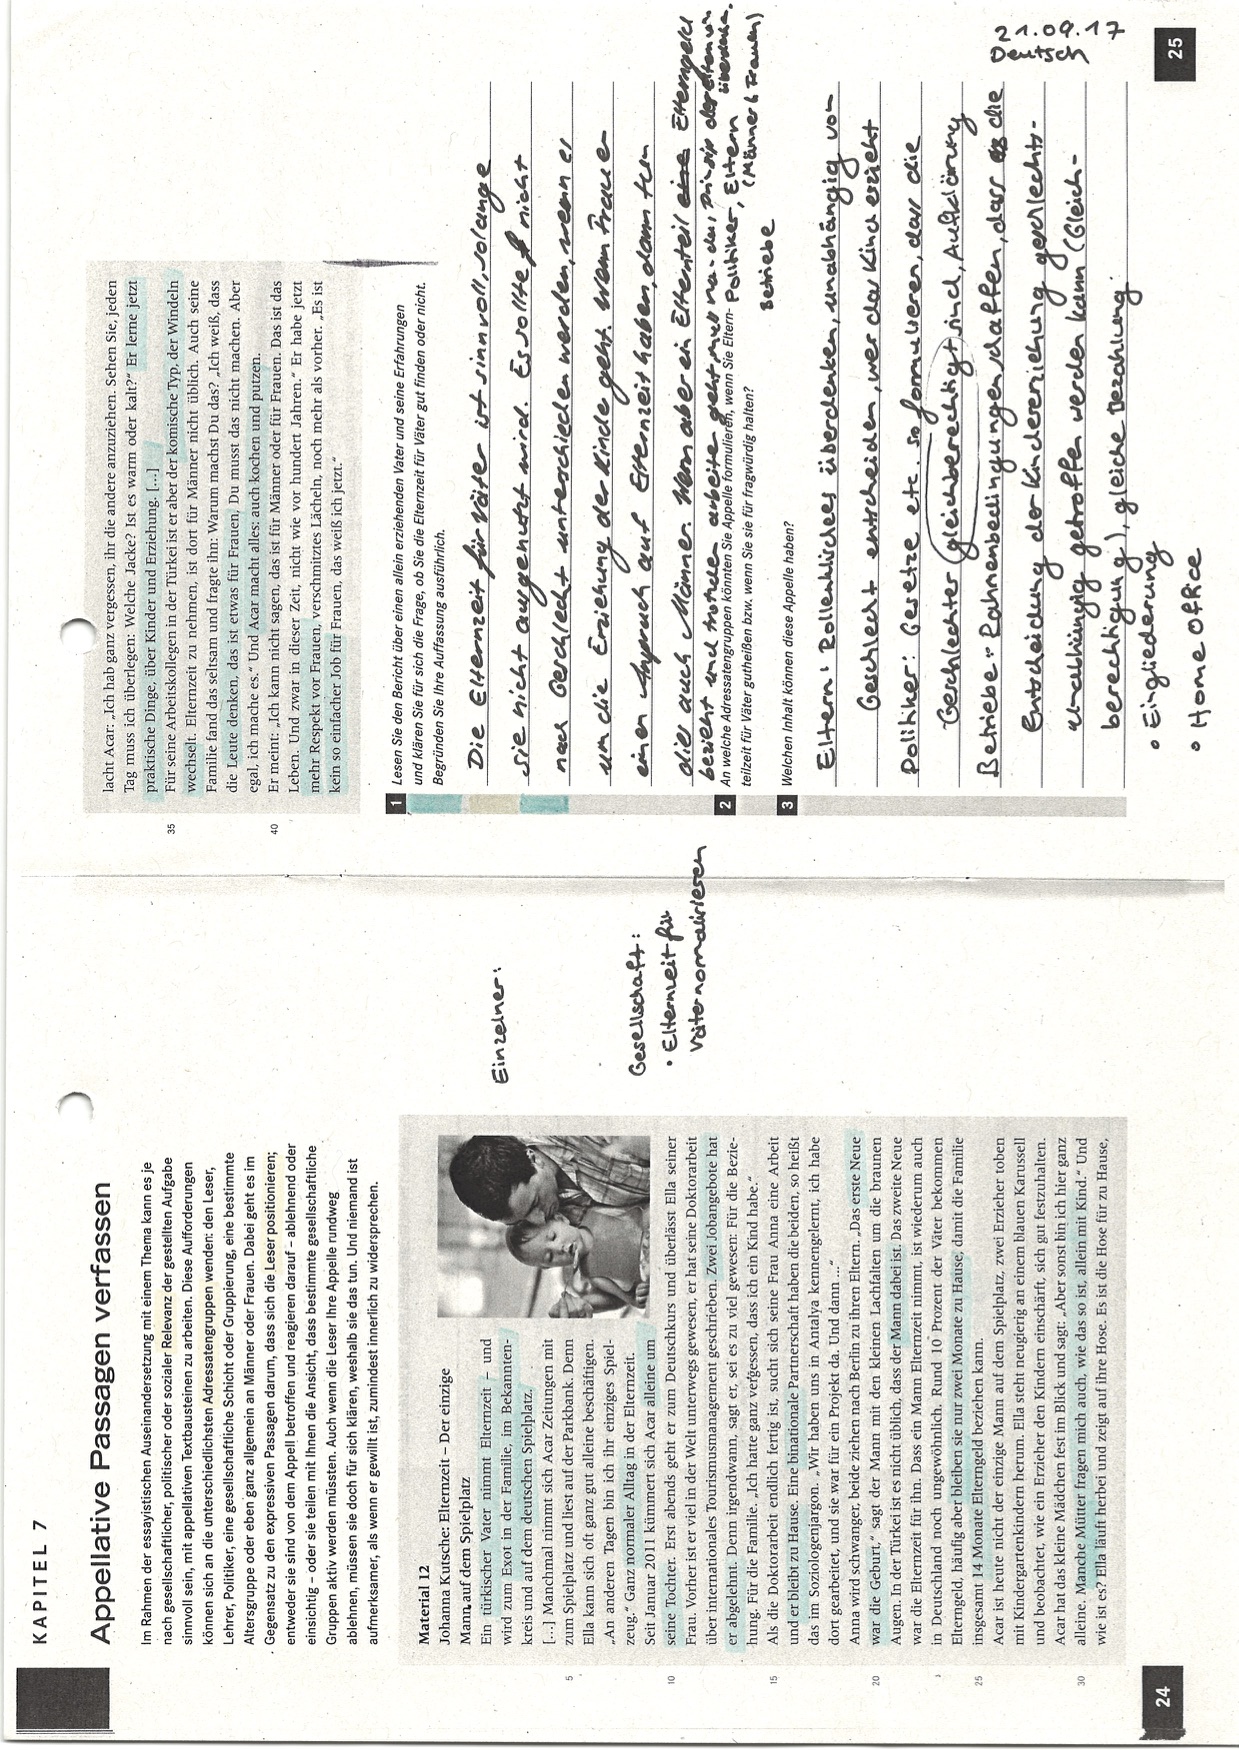 KAPITEL 7
Appellative Passagen verfassen
Im Rahmen der essayistischen Auseinandersetzung mit einem Thema kann es je
nach gesellschaftlicher, politischer oder sozialer Relevanz der gestellten Aufgabe
sinnvoll sein, mit appellativen Textbausteinen zu arbeiten. Diese Aufforderungen
können sich an die unterschiedlichsten Adressatengruppen wenden: den Leser,
Lehrer, Politiker, eine gesellschaftliche Schicht oder Gruppierung, eine bestimmte
Altersgruppe oder eben ganz allgemein an Männer oder Frauen. Dabei geht es im
Gegensatz zu den expressiven Passagen darum, dass sich die Leser positionieren;
entweder sie sind von dem Appell betroffen und reagieren darauf – ablehnend oder
einsichtig – oder sie teilen mit Ihnen die Ansicht, dass bestimmte gesellschaftliche
Gruppen aktiv werden müssten. Auch wenn die Leser Ihre Appelle rundweg
ablehnen, müssen sie doch für sich klären, weshalb sie das tun. Und niemand ist
aufmerksamer, als wenn er gewillt ist, zumindest innerlich zu widersprechen.
Material 12
Johanna Kutsche: Elternzeit – Der einzige
Mann auf dem Spielplatz
Ein türkischer Vater nimmt Elternzeit – und
wird zum Exot in der Familie, im Bekannten-
kreis und auf dem deutschen Spielplatz.
[...] Manchmal nimmt sich Acar Zeitungen mit
5 zum Spielplatz und liest auf der Parkbank. Denn
Ella kann sich oft ganz gut alleine beschäftigen.
„An anderen Tagen bin ich ihr einziges Spiel-
zeug.“ Ganz normaler Alltag in der Elternzeit.
Seit Januar 2011 kümmert sich Acar alleine um
10 seine Tochter. Erst abends geht er zum Deutschkurs und überlässt Ella seiner
Frau. Vorher ist er viel in der Welt unterwegs gewesen, er hat seine Doktorarbeit
über internationales Tourismusmanagement geschrieben. Zwei Jobangebote hat
er abgelehnt. Denn irgendwann, sagt er, sei es zu viel gewesen: Für die Bezie-
hung. Für die Familie. „Ich hatte ganz vergessen, dass ich ein Kind habe.“
15 Als die Doktorarbeit endlich fertig ist, sucht sich seine Frau Anna eine Arbeit
und er bleibt zu Hause. Eine binationale Partnerschaft haben die beiden, so heißt
das im Soziologenjargon. „Wir haben uns in Antalya kennengelernt, ich habe
dort gearbeitet, und sie war für ein Projekt da. Und dann ...“
Anna wird schwanger, beide ziehen nach Berlin zu ihren Eltern. „Das erste Neue
20 war die Geburt,“ sagt der Mann mit den kleinen Lachfalten um die braunen
Augen. In der Türkei ist es nicht üblich, dass der Mann dabei ist. Das zweite Neue
war die Elternzeit für ihn. Dass ein Mann Elternzeit nimmt, ist wiederum auch
in Deutschland noch ungewöhnlich. Rund 10 Prozent der Väter bekommen
Elterngeld, häufig aber bleiben sie nur zwei Monate zu Hause, damit die Familie
25 insgesamt 14 Monate Elterngeld beziehen kann.
Acar ist heute nicht der einzige Mann auf dem Spielplatz, zwei Erzieher toben
mit Kindergartenkindern herum. Ella steht neugierig an einem blauen Karussell
und beobachtet, wie ein Erzieher den Kindern einschärft, sich gut festzuhalten.
Acar hat das kleine Mädchen fest im Blick und sagt: „Aber sonst bin ich hier ganz
30 alleine. Manche Mütter fragen mich auch, wie das so ist, allein mit Kind.“ Und
wie ist es? Ella läuft herbei und zeigt auf ihre Hose. Es ist die Hose für zu Hause,
Einzelner:
Gesellschaft:
• Elternzeit für
Väter normalisieren
24
lacht Acar: „Ich hab ganz vergessen, ihr die andere anzuziehen. Sehen Sie, jeden
Tag muss ich überlegen: Welche Jacke? Ist es warm oder kalt?“ Er lerne jetzt
praktische Dinge, über Kinder und Erziehung. [...]
35 Für seine Arbeitskollegen in der Türkei ist er aber der komische Typ, der Windeln
wechselt. Elternzeit zu nehmen, ist dort für Männer nicht üblich. Auch seine
Familie fand das seltsam und fragte ihn: Warum machst Du das? „Ich weiß, dass
die Leute denken, das ist etwas für Frauen, Du musst das nicht machen. Aber
egal, ich mache es.“ Und Acar macht alles: auch kochen und putzen.
40 Er meint: „Ich kann nicht sagen, das ist für Männer oder für Frauen. Das ist das
Leben. Und zwar in dieser Zeit, nicht wie vor hundert Jahren.“ Er habe jetzt
mehr Respekt vor Frauen, verschmitztes Lächeln, noch mehr als vorher. „Es ist
kein so einfacher Job für Frauen, das weiß ich jetzt.“
1 Lesen Sie den Bericht über einen allein erziehenden Vater und seine Erfahrungen
und klären Sie für sich die Frage, ob Sie die Elternzeit für Väter gut finden oder nicht.
Begründen Sie Ihre Auffassung ausführlich.
Die Elternzeit für Väter ist sinnvoll, solange
sie nicht ausgenutzt wird. Es sollte nicht
nach Geschlecht unterschieden werden, wenn es
um die Erziehung der Kinder geht. Wenn Frauen
einen Anspruch auf Elternzeit haben, dann tun
dies auch Männer. Wenn aber ein Elternteil eine Elterngeld
bezieht und trotzdem arbeiten geht, muss man das Prinzip der Eltern
überdenken.
2 An welche Adressatengruppen könnten Sie Appelle formulieren, wenn Sie Eltern-
teilzeit für Väter gutheißen bzw. wenn Sie sie für fragwürdig halten?
Politiker, Eltern
(Männer & Frauen)
Betriebe
3 Welchen Inhalt können diese Appelle haben?
Eltern: Rollenklischees überdenken, unabhängig vom
Geschlecht entscheiden, wer das Kind erzieht
Politiker: Gesetze etc. so formulieren, dass die
Geschlechter gleichberechtigt sind, Aufklärung
Betriebe: Rahmenbedingungen schaffen, dass die
Entscheidung der Kindererziehung geschlechts-
unabhängig getroffen werden kann (Gleich-
berechtigung), gleiche Bezahlung
• Eingliederung
• Home Office
21.09.17
Deutsch
25